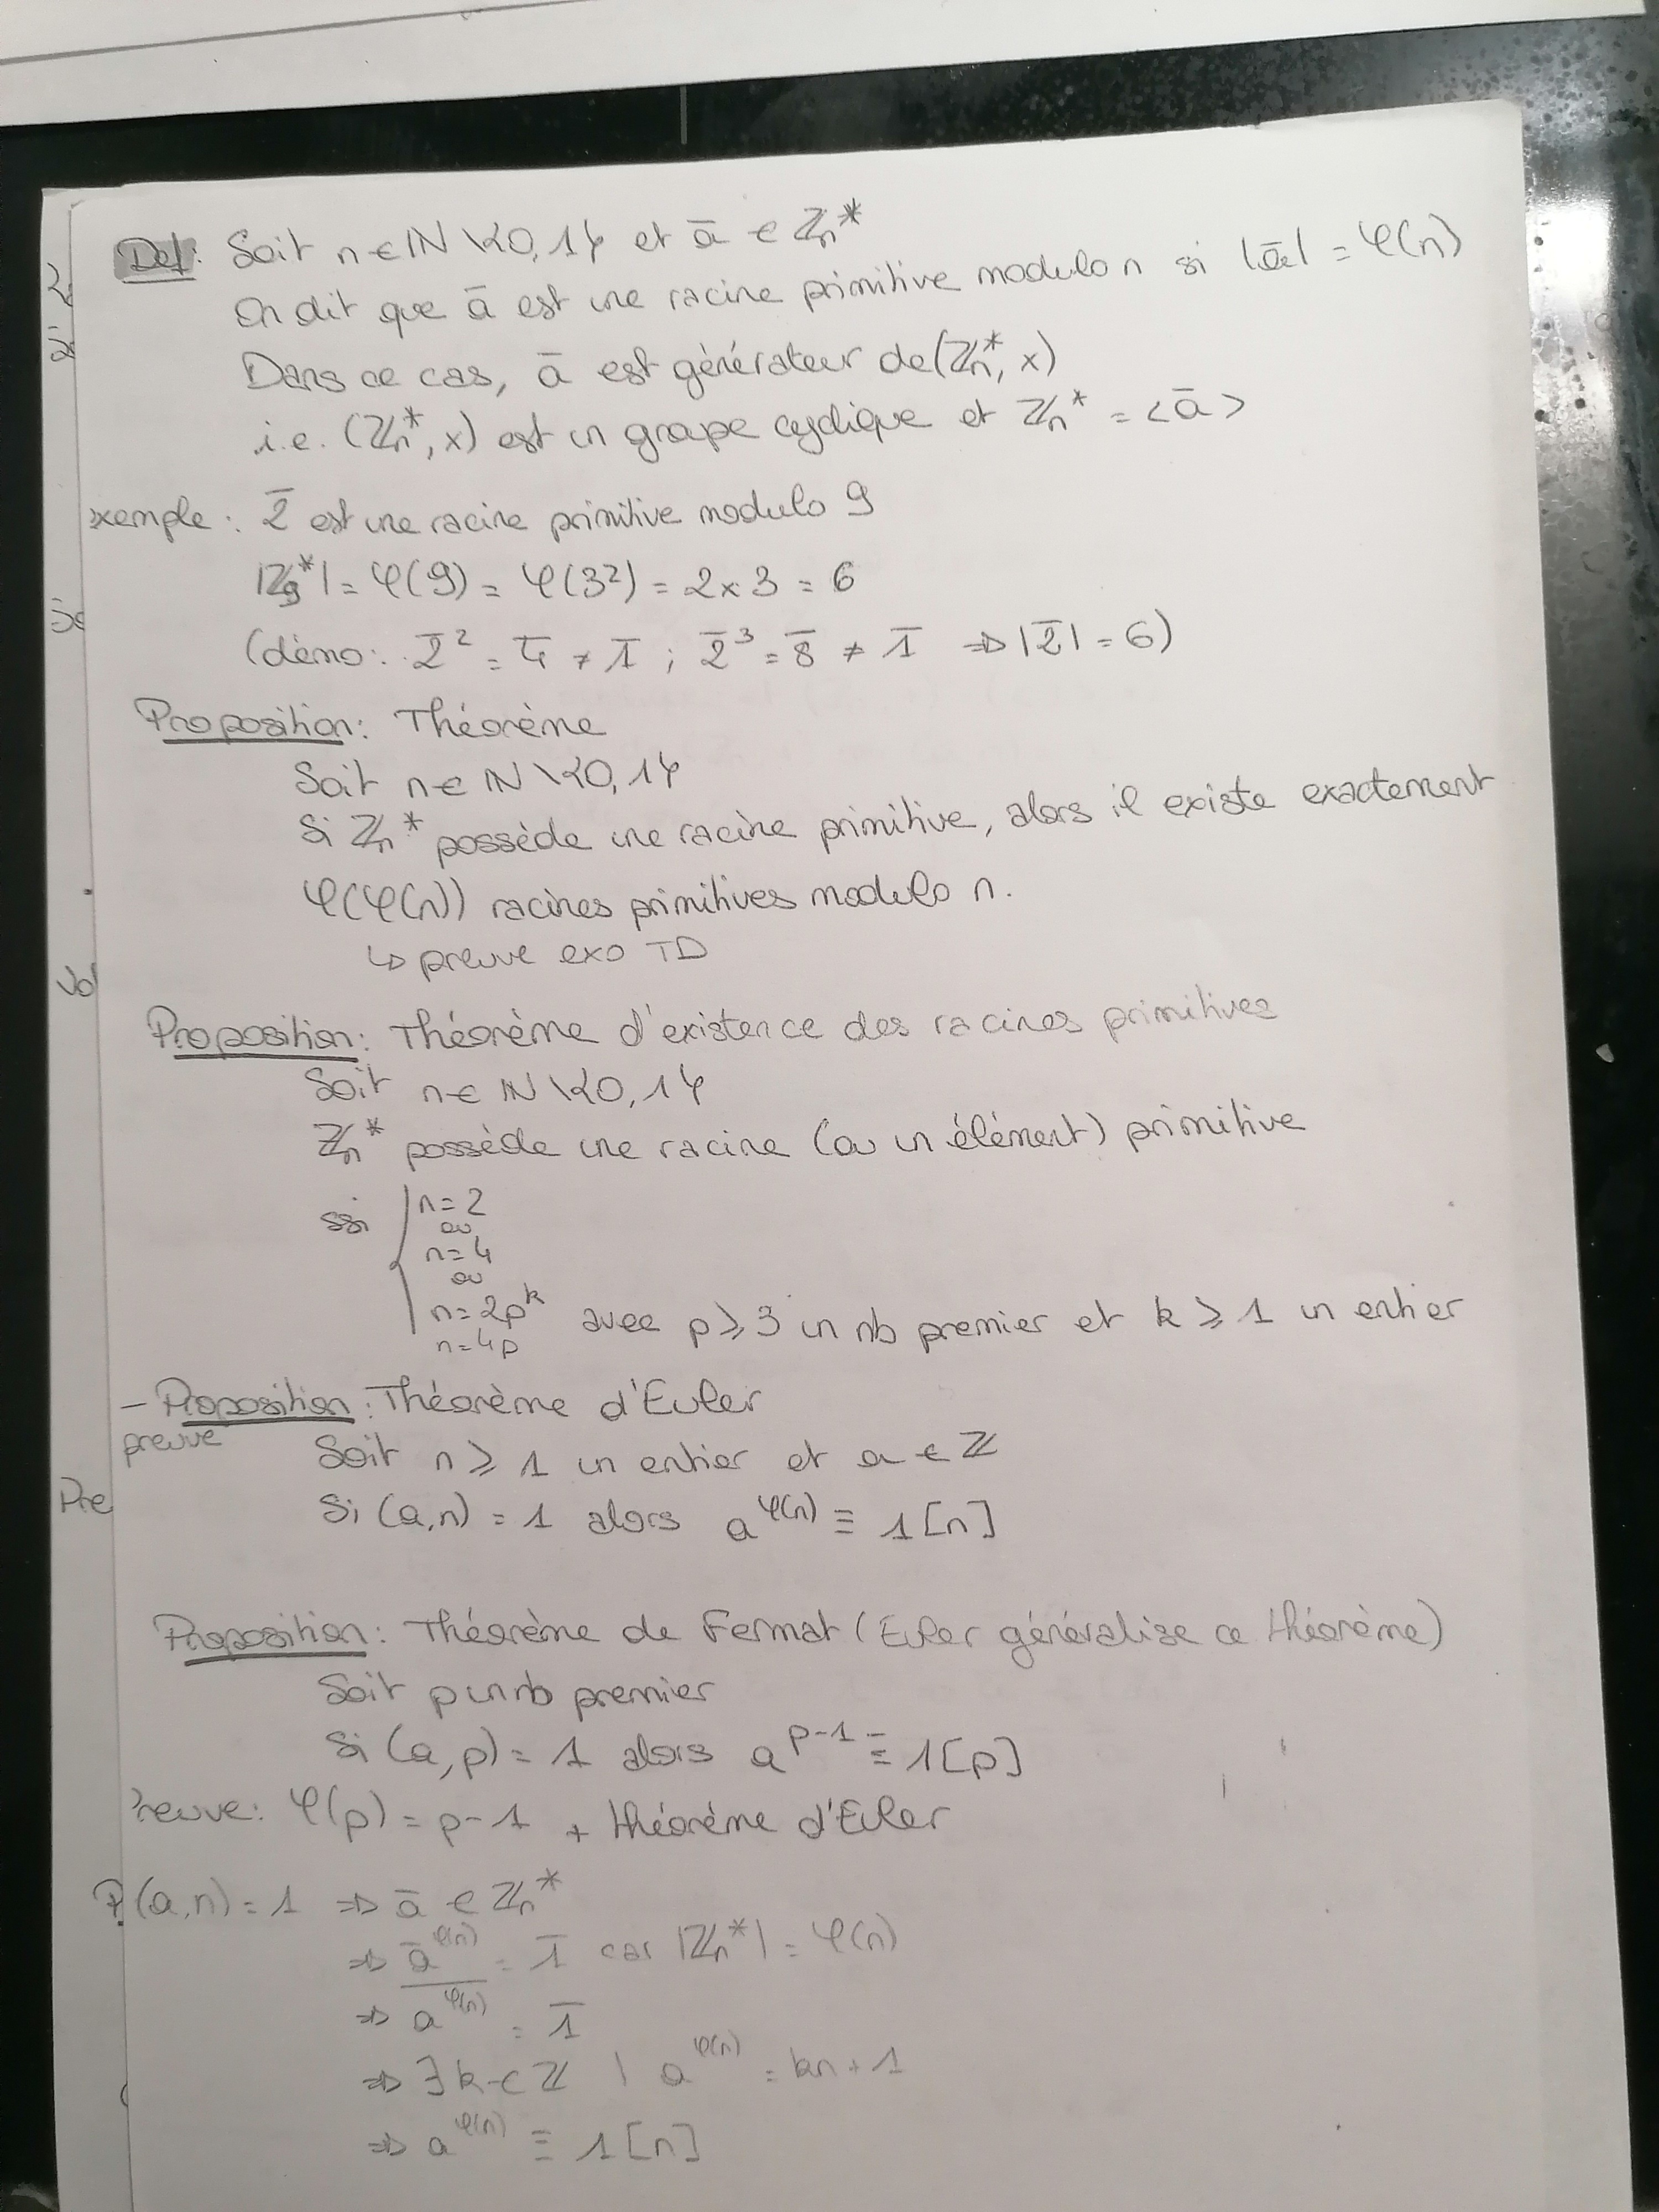 Def: Soit n ∈ ℕ \ {0,1} et ā ∈ ℤn*
On dit que ā est une racine primitive modulo n si |ā| = φ(n)
Dans ce cas, ā est générateur de (ℤn*, ×)
i.e. (ℤn*, ×) est un groupe cyclique et ℤn* = <ā>
xemple : 2̄ est une racine primitive modulo 9
|ℤ9*| = φ(9) = φ(3²) = 2×3 = 6
(démo: 2̄² = 4̄ ≠ 1̄ ; 2̄³ = 8̄ ≠ 1̄ ⇒ |2̄| = 6)
Proposition: Théorème
Soit n ∈ ℕ \ {0,1}
Si ℤn* possède une racine primitive, alors il existe exactement
φ(φ(n)) racines primitives modulo n.
↳ preuve exo TD
Proposition: Théorème d'existence des racines primitives
Soit n ∈ ℕ \ {0,1}
ℤn* possède une racine (ou un élément) primitive
ssi { n = 2
ou
n = 4
ou
n = 2p^k avec p ⩾ 3 un nb premier et k ⩾ 1 un entier
n = 4p
– Proposition: Théorème d'Euler
preuve
Soit n ⩾ 1 un entier et a ∈ ℤ
Si (a,n) = 1 alors a^φ(n) ≡ 1 [n]
Pre
Proposition: Théorème de Fermat (Euler généralise ce théorème)
Soit p un nb premier
Si (a,p) = 1 alors a^p-1 ≡ 1 [p]
reuve: φ(p) = p-1 + théorème d'Euler
P. (a,n) = 1 ⇒ ā ∈ ℤn*
⇒ ā^φ(n) = 1̄ car |ℤn*| = φ(n)
⇒ a^φ(n) = 1̄
⇒ ∃ k ∈ ℤ | a^φ(n) = kn + 1
⇒ a^φ(n) ≡ 1 [n]